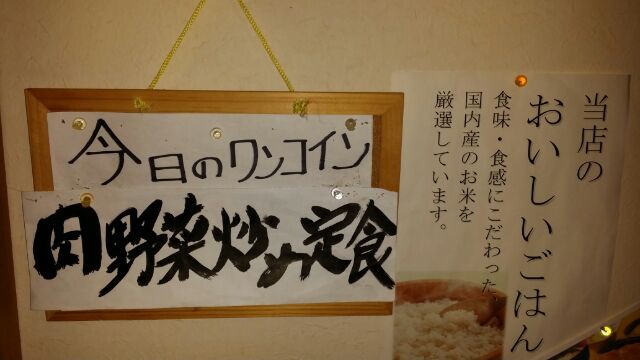 今日のワンコイン
肉野菜炒め定食
当店の
おいしいごはん
食味・食感にこだわった、
国内産のお米を
厳選しています。